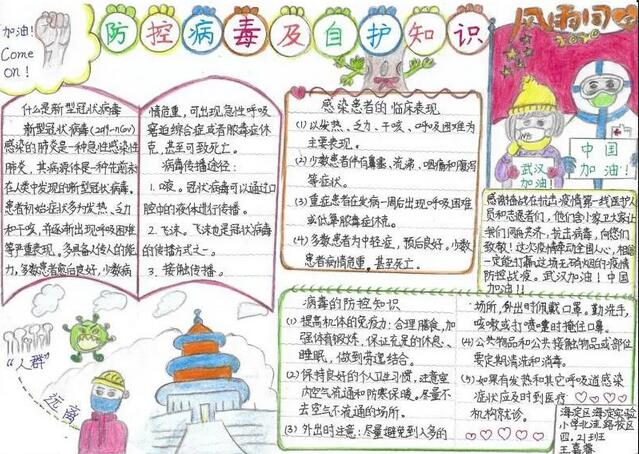 加油!
Come
on!
防控病毒及自护知识
风雨同
2020
什么是新型冠状病毒
新型冠状病毒(2019-nCoV)
感染的肺炎是一种急性感染性
肺炎,其病原体是一种先前未
在人类中发现的新型冠状病毒。
患者初始症状多为发热、乏力
和干咳,并逐渐出现呼吸困难
等严重表现。多具备人传人的能
力,多数患者愈后良好,少数病
情危重,可出现急性呼吸
窘迫综合症或者脓毒症休
克,甚至可致死亡。
病毒传播途径:
1.咳。冠状病毒可以通过口
腔中的液体进行传播。
2.飞沫。飞沫也是冠状病毒
的传播方式之一。
3.接触传播。
感染患者的临床表现
(1)以发热、乏力、干咳、呼吸困难为
主要表现。
(2)少数患者伴有鼻塞、流涕、咽痛和腹泻
等症状。
(3)重症患者在发病一周后出现呼吸困难
或低氧脓毒症休克。
(4)多数患者为中轻症,预后良好。少数
患者病情危重,甚至死亡。
武汉
加油!
中国
加油!
感谢奋战在抗击疫情第一线医护人
员和志愿者们,他们舍小家卫大家让
我们同舟共济,抗击病毒,向您们
致敬!这次疫情牵动全国人心,相信
一定能打赢这场无硝烟的疫情
防控战疫。武汉加油!中国
加油!!
“人群”
远离
病毒的防控知识
(1)提高机体的免疫力:合理膳食,加
强体育锻炼,保证充足的休息、
睡眠,做到劳逸结合。
(2)保持良好的个人卫生习惯,注意室
内空气流通和防寒保暖。尽量不
去空气不流通的场所。
(3)外出时注意:尽量避免到人多的
场所,外出时佩戴口罩。勤洗手,
咳嗽或打喷嚏时掩住口鼻。
(4)公共物品和公共接触物品或部位
要定期清洗和消毒。
(5)如果有发热和其它呼吸道感染
症状应及时到医疗
机构就诊。
海淀区海淀实验
小学北洼路校区
四.21班
王嘉睿